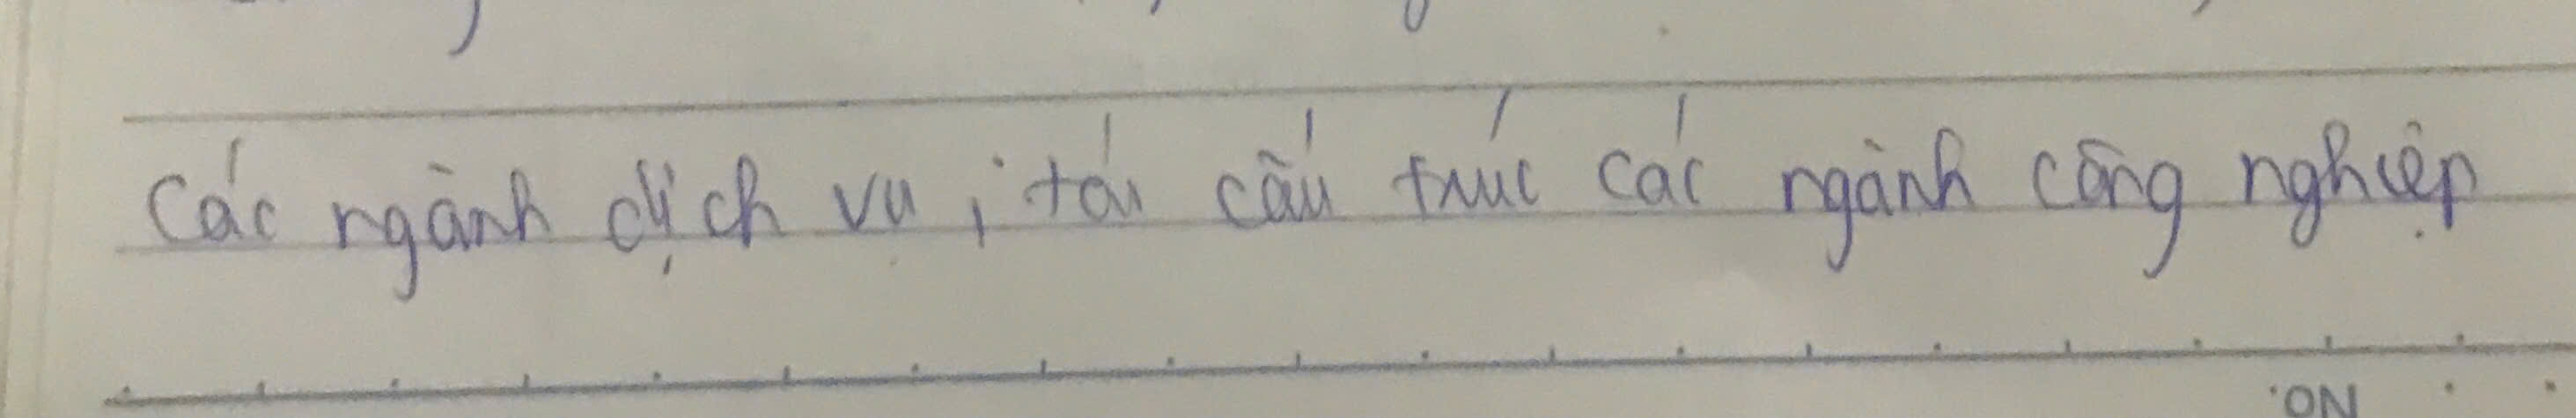 các ngành dịch vụ, tái cấu trúc các ngành công nghiệp
No.